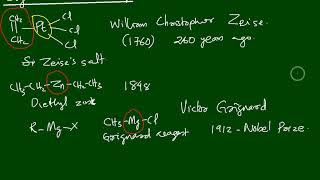 CH₂ Cl
|| Pt Cl
CH₂ Cl
William Christopher Zeise.
(1760) 260 years ago.
Zeise's salt
CH₃-CH₂-Zn-CH₂-CH₃ 1848
Diethyl zinc
Victor Grignard
R-Mg-X CH₃-Mg-Cl
Grignard reagent 1912-Nobel Prize.